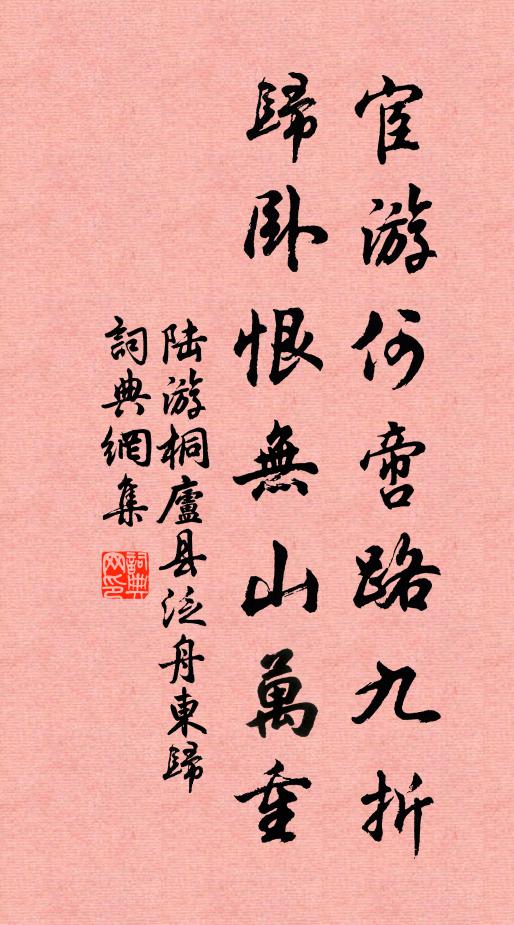 宦游何啻路九折
歸臥恨無山萬重
陆游桐廬县泛舟東歸
詞典網集
詞典網印